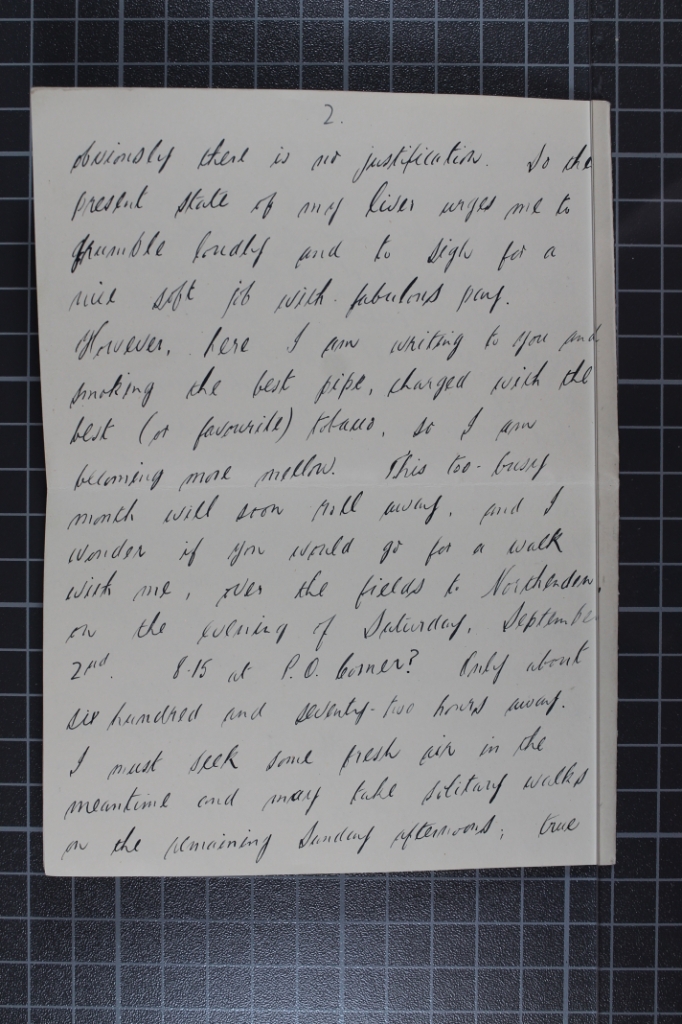 2.
obviously there is no justification. So the
present state of my liver urges me to
grumble loudly and to sigh for a
nice soft job with fabulous pay.
However, here I am writing to you and
smoking the best pipe, charged with the
best (or favourite) tobacco, so I am
becoming more mellow. This too-busy
month will soon roll away, and I
wonder if you would go for a walk
with me, over the fields to Northenden,
on the evening of Saturday, September
2nd. 8-15 at P.O. Corner? Only about
six hundred and seventy-two hours away.
I must seek some fresh air in the
meantime and may take solitary walks
on the remaining Sunday afternoons; true